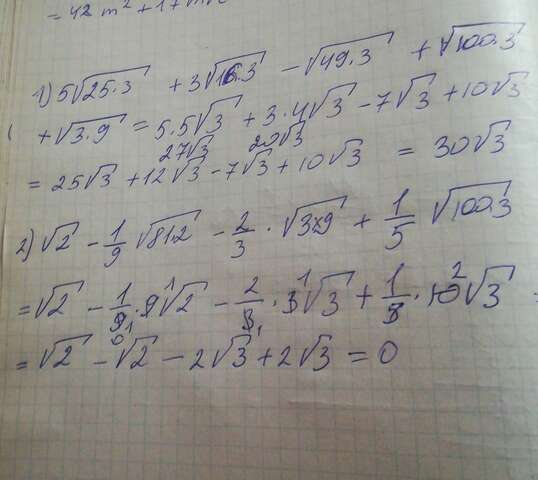 = 42 m² + 17mn
1) 5√25·3 + 3√16·3 - √49·3 + √100·3
+ √3·9 = 5·5√3 + 3·4√3 - 7√3 + 10√3
27√3 20√3
= 25√3 + 12√3 - 7√3 + 10√3 = 30√3
2) √2 - 1/9 √81·2 - 2/3 · √3×9 + 1/5 √100·3
= √2 - 1/9 · 9¹√2 - 2/3 · 3¹√3 + 1/5 · 10²√3
= √2 - √2 - 2√3 + 2√3 = 0